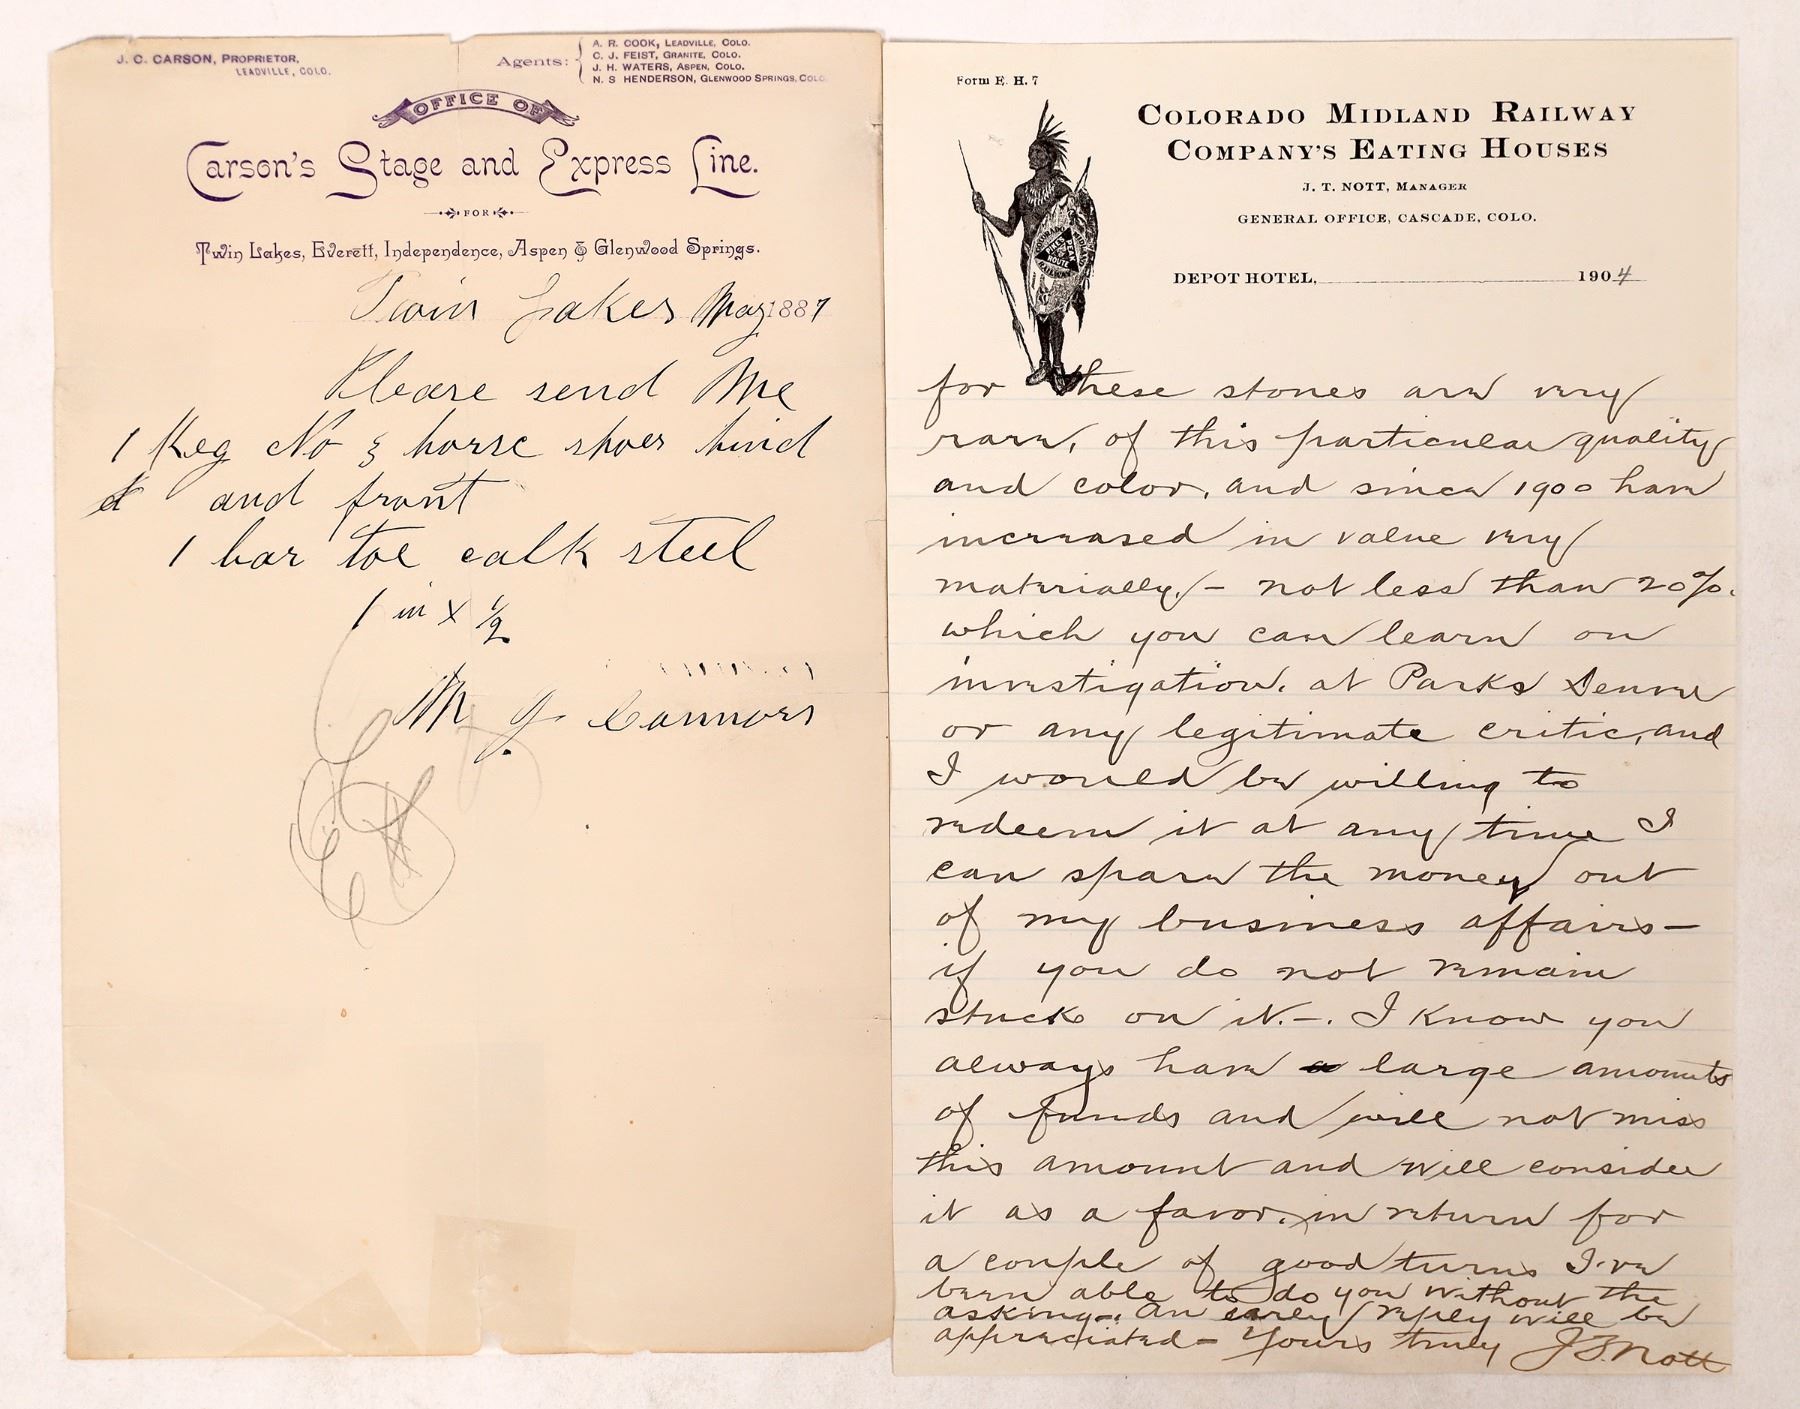 J. C. CARSON, PROPRIETOR,
LEADVILLE, COLO.
Agents:
A. R. COOK, LEADVILLE, COLO.
C. J. FEIST, GRANITE, COLO.
J. H. WATERS, ASPEN, COLO.
N. S HENDERSON, GLENWOOD SPRINGS, COLO.
OFFICE OF
Carson's Stage and Express Line.
FOR
Twin Lakes, Everett, Independence, Aspen & Glenwood Springs.
Twin Lakes May 1887
Please send Me
1 Keg No 3 horse shoes hind
and front
1 bar toe calk steel
1 in x 1/2
M J Connors
Form E. H. 7
COLORADO MIDLAND RAILWAY
COMPANY'S EATING HOUSES
J. T. NOTT, MANAGER
GENERAL OFFICE, CASCADE, COLO.
COLORADO MIDLAND
PIKES PEAK ROUTE
RAILWAY
DEPOT HOTEL, 1904
for these stones are very
rare, of this particular quality
and color, and since 1900 have
increased in value very
materially,- not less than 20%.
which you can learn on
investigation, at Parks Denver
or any legitimate critic, and
I would be willing to
redeem it at any time I
can spare the money out
of my business affairs-
if you do not remain
stuck on it.-. I know you
always have large amounts
of funds and will not miss
this amount and will consider
it as a favor, in return for
a couple of good turns I've
been able to do you without the
asking-. An early reply will be
appreciated- Yours truly J.T. Nott